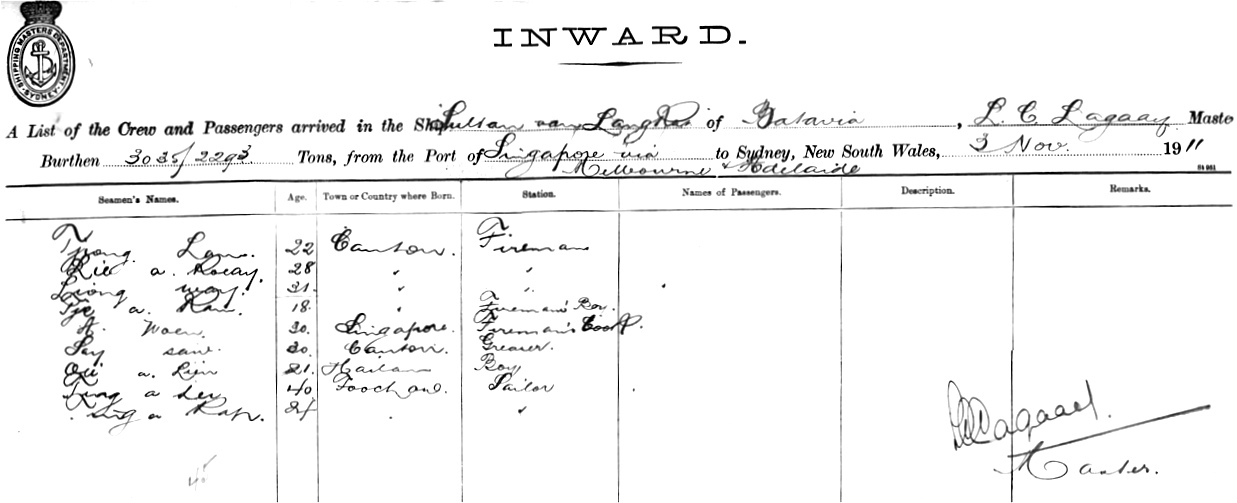 SHIPPING MASTERS DEPARTMENT SYDNEY
INWARD.
A List of the Crew and Passengers arrived in the Ship Sultan van Langkat of Batavia, L. C. Lagaay Maste
Burthen 3035/2293 Tons, from the Port of Singapore via to Sydney, New South Wales, 3 Nov. 1911
Melbourne & Adelaide
Seamen's Names. Age. Town or Country where Born. Station. Names of Passengers. Description. Remarks.
Tjong Lam. 22 Canton. Fireman
a. 28 " "
Liong way. 31. " "
a. Kan. 18. " Fireman's Boy.
A. Woen. 30. Singapore. Fireman's Cook.
Say sam. 30. Canton. Greaser.
a. Lien 21. Hailam Boy
a 40 Foochow. Sailor
a Kap. 24 "
Lagaay.
Master.